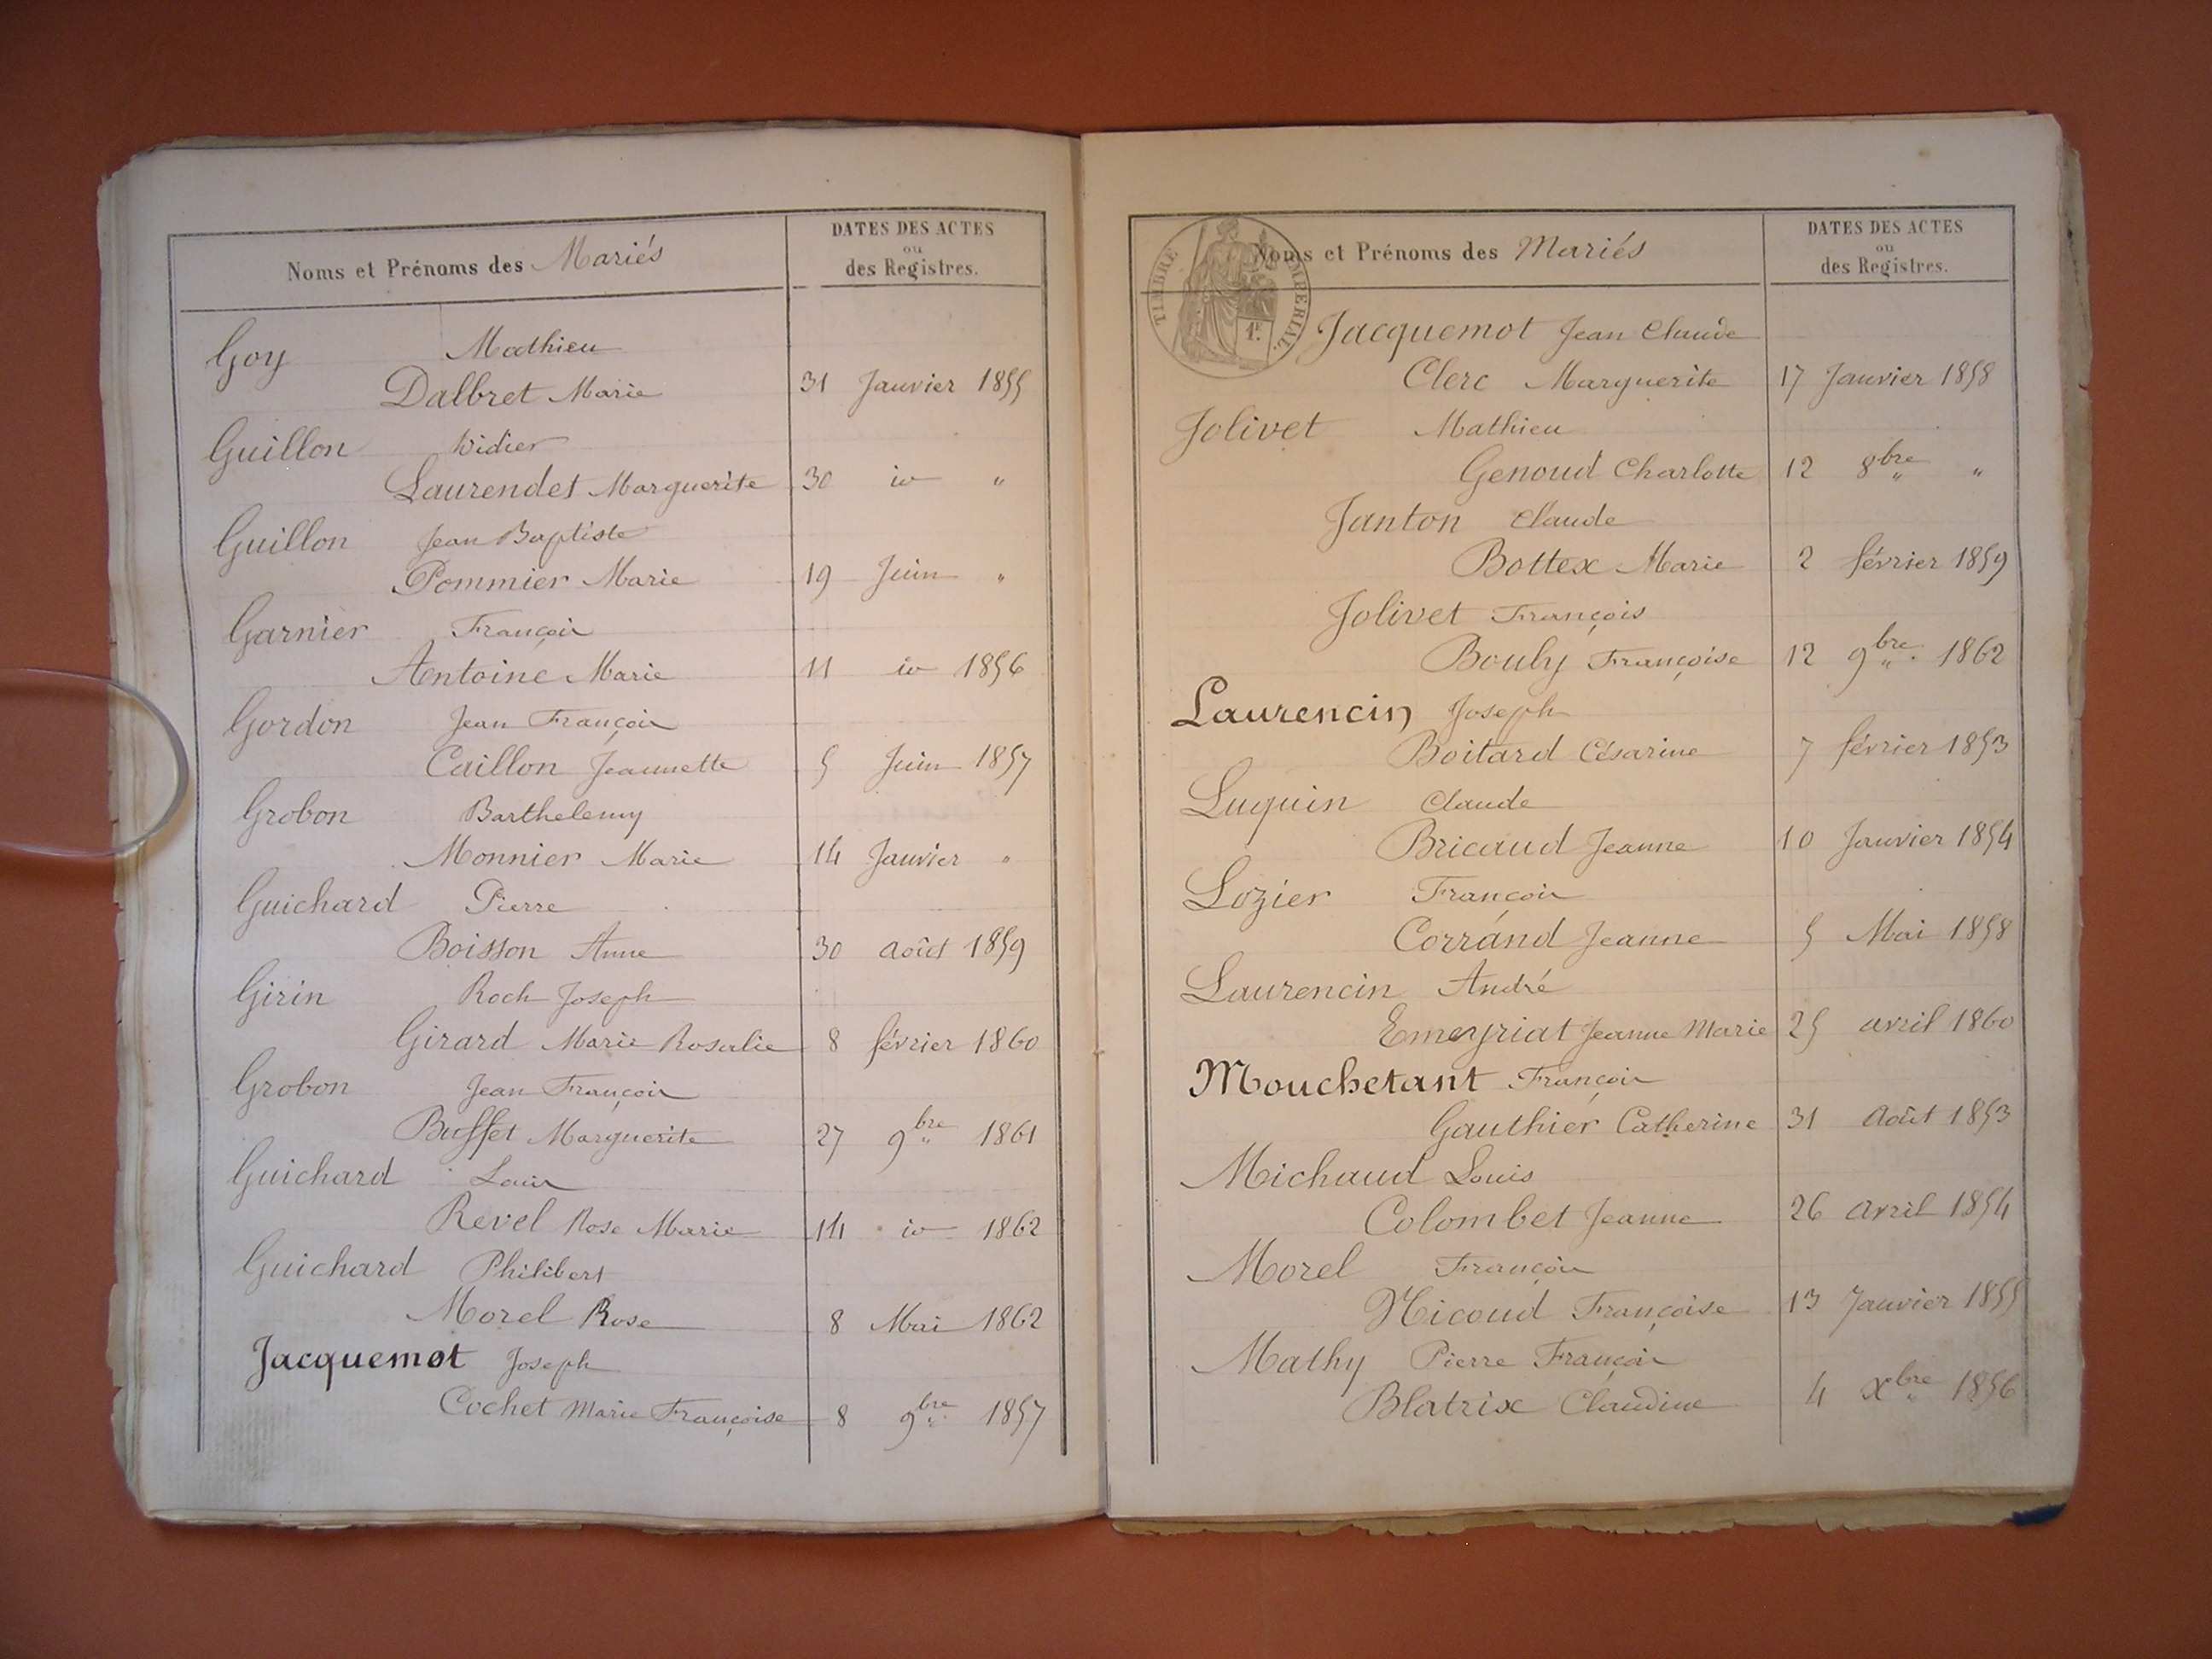 Noms et Prénoms des Mariés
DATES DES ACTES
ou
des Registres.
Goy Mathieu
Dalbret Marie 31 Janvier 1855
Guillon Didier
Laurendet Marguerite 30 id "
Guillon Jean Baptiste
Pommier Marie 19 Juin "
Garnier François
Antoine Marie 11 id 1856
Gordon Jean François
Caillon Jeannette 5 Juin 1857
Grobon Barthelemy
Monnier Marie 14 Janvier "
Guichard Pierre
Boisson Anne 30 août 1859
Girin Roch Joseph
Girard Marie Rosalie 8 février 1860
Grobon Jean François
Buffet Marguerite 27 9bre 1861
Guichard Louis
Revel Rose Marie 14 id 1862
Guichard Philibert
Morel Rose 8 Mai 1862
Jacquemot Joseph
Cochet Marie Françoise 8 9bre 1857
TIMBRE IMPERIAL
1F.
Noms et Prénoms des Mariés
DATES DES ACTES
ou
des Registres.
Jacquemot Jean Claude
Clerc Marguerite 17 Janvier 1858
Jolivet Mathieu
Genoud Charlotte 12 8bre "
Janton Claude
Bottex Marie 2 février 1859
Jolivet François
Bouly Françoise 12 9bre 1862
Laurencin Joseph
Boitard Césarine 7 février 1853
Luquin Claude
Bricaud Jeanne 10 Janvier 1854
Lozier François
Corrand Jeanne 5 Mai 1858
Laurencin André
Emeyriat Jeanne Marie 25 avril 1860
Mouchetant François
Gauthier Catherine 31 Août 1853
Michaud Louis
Colombet Jeanne 26 avril 1854
Morel François
Nicoud Françoise 13 Janvier 1855
Mathy Pierre François
Blatrix Claudine 4 Xbre 1856